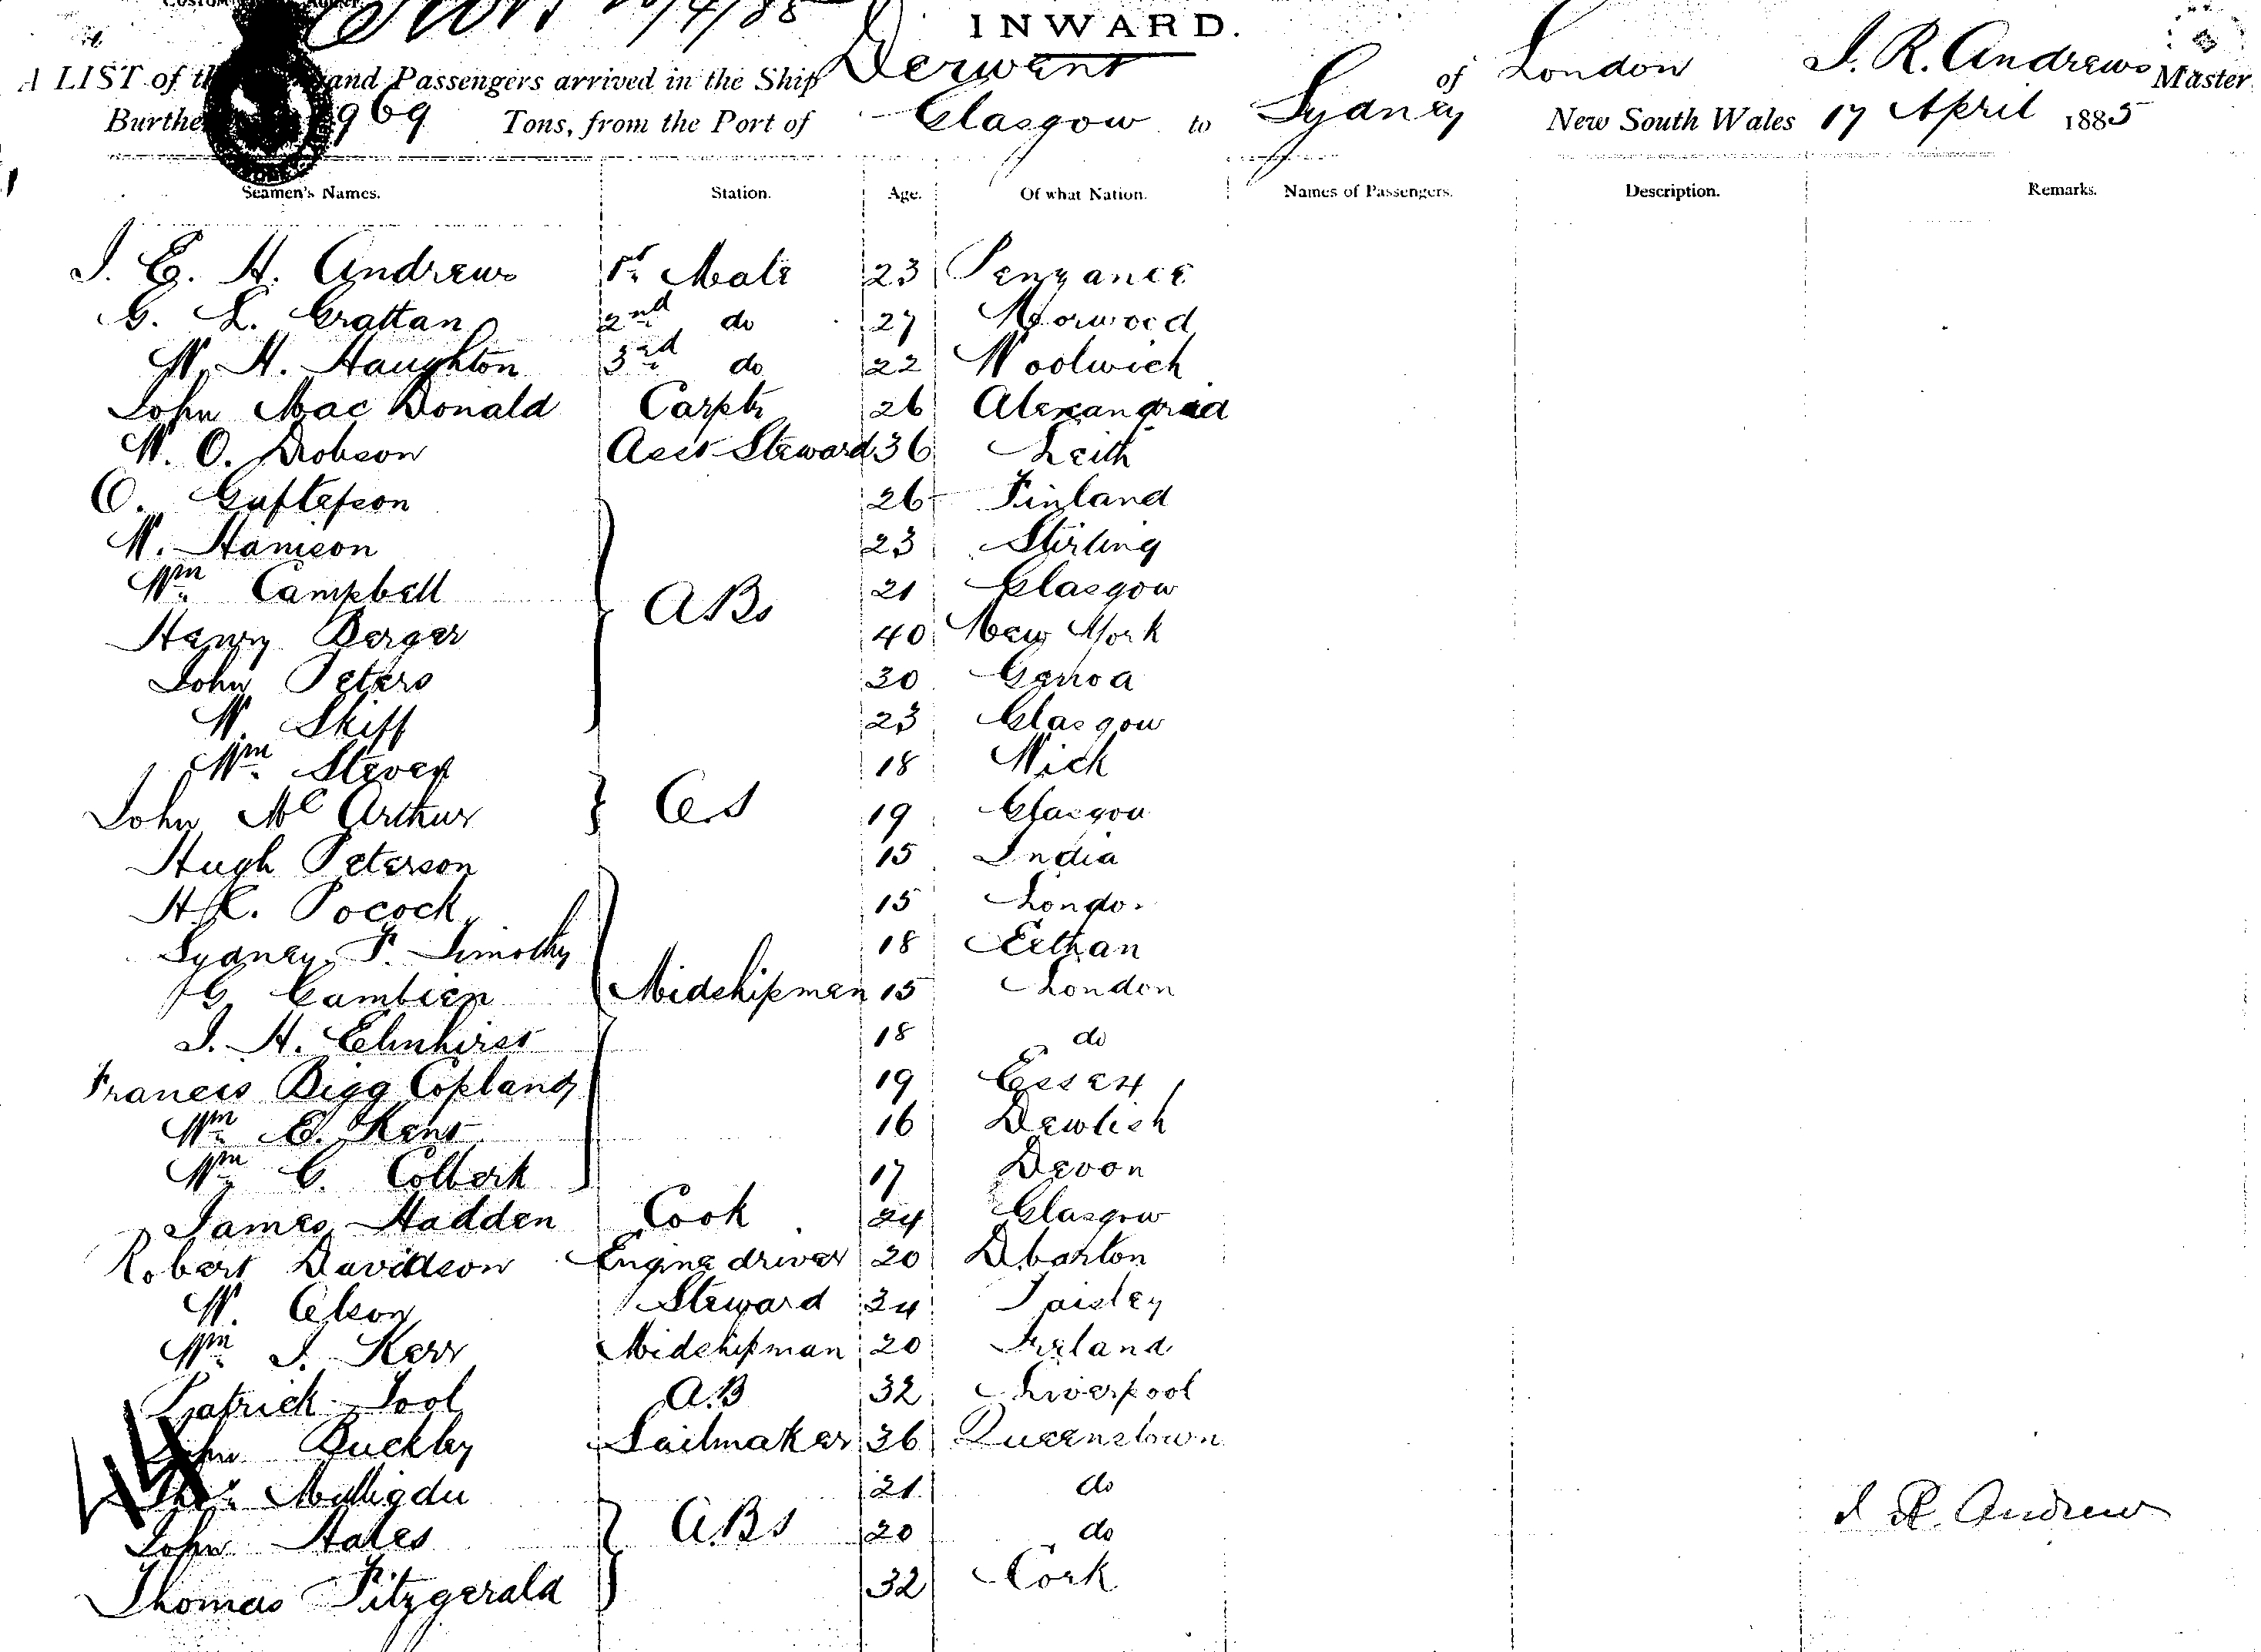 INWARD.
A LIST of the and Passengers arrived in the Ship Derwent of London J. R. Andrews Master
Burthen 1969 Tons, from the Port of Glasgow to Sydney New South Wales 17 April 1885
Seamen's Names. Station. Age. Of what Nation. Names of Passengers. Description. Remarks.
J. E. H. Andrews 1st Mate 23 Penzance
G. L. Grattan 2nd do 27 Norwood
W. H. Haughton 3rd do 22 Woolwich
John Mac Donald Carptr 26
W. O. Dobson Asst Steward 36 Leith
O. Gustafson 26 Finland
W. 23 Stirling
Wm Campbell 21 Glasgow
ABs
Henry Berger 40 New York
John Peters 30 Genoa
W. Skiff 23 Glasgow
Wm Steven 18 Wick
John Mc Arthur OS 19 Glasgow
Hugh Peterson 15 India
H. C. Pocock 15 London
Sydney F. Timothy 18
G. Cambien Midshipmen 15 London
J. H. Elmhirst 18 do
Francis Bigg Copland 19 Essex
Wm E. Kent 16 Dawlish
Wm C. 17 Devon
James Hadden Cook 24 Glasgow
Robert Davidson Engine driver 20 Dbarton
W. Olson Steward 34 Paisley
Wm J. Kerr Midshipman 20 Ireland
Patrick Tool A.B 32 Liverpool
John Buckley Sailmaker 36 Queenstown
21 do
John Hales A.Bs 20 do
J R. Andrew
Thomas Fitzgerald 32 Cork